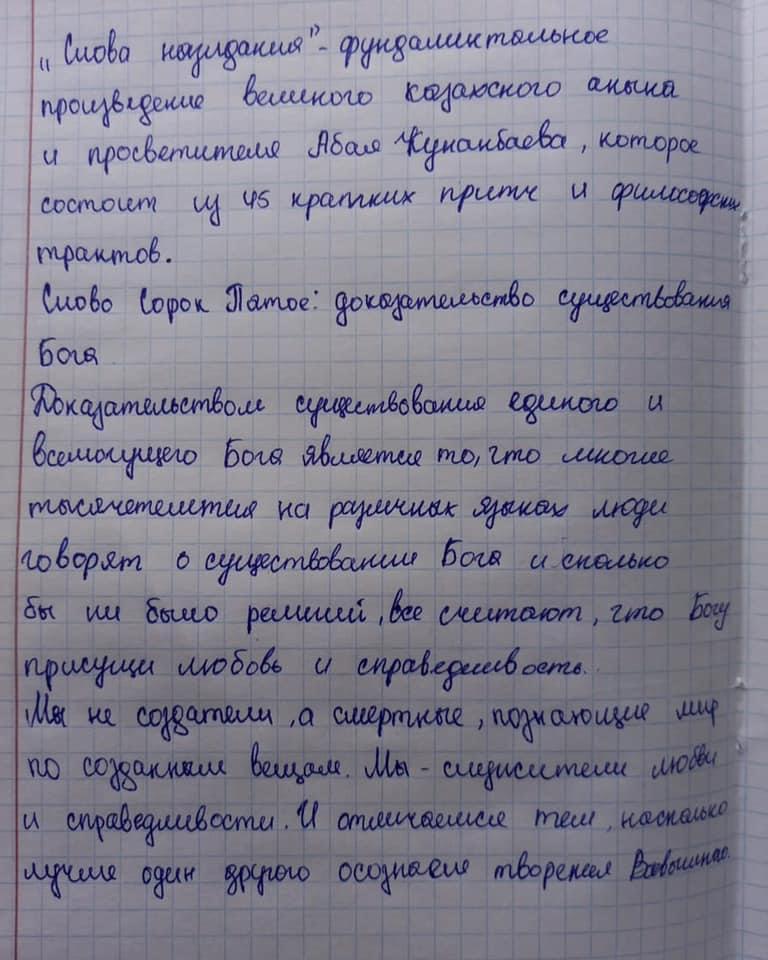 „Слова назидания" - фундаментальное
произведение великого казахского акына
и просветителя Абая Кунанбаева, которое
состоит из 45 кратких притч и философских
трактов.
Слово Сорок Пятое: доказательство существования
Бога
Доказательством существования единого и
всемогущего Бога является то, что многие
тысячетелетия на различных языках люди
говорят о существовании Бога и сколько
бы ни было религий, все считают, что Богу
присущи любовь и справедливость.
Мы не создатели, а смертные, познающие мир
по созданным вещам. Мы - служители любви
и справедливости. И отличаемся тем, насколько
лучше один другого осознаем творения Всевышнего.